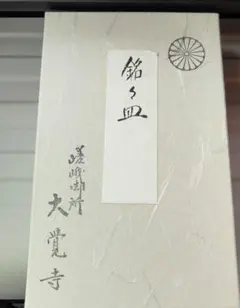 銘々皿
嵯峨御所
大覺寺